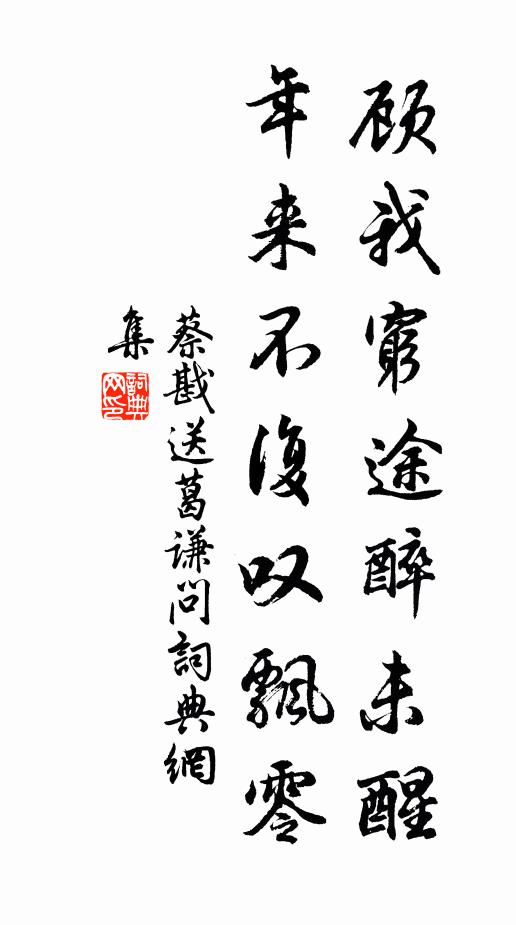 顾我窮途醉未醒
年来不復叹飄零
蔡戡送葛谦問詞典網
集
詞典
网印